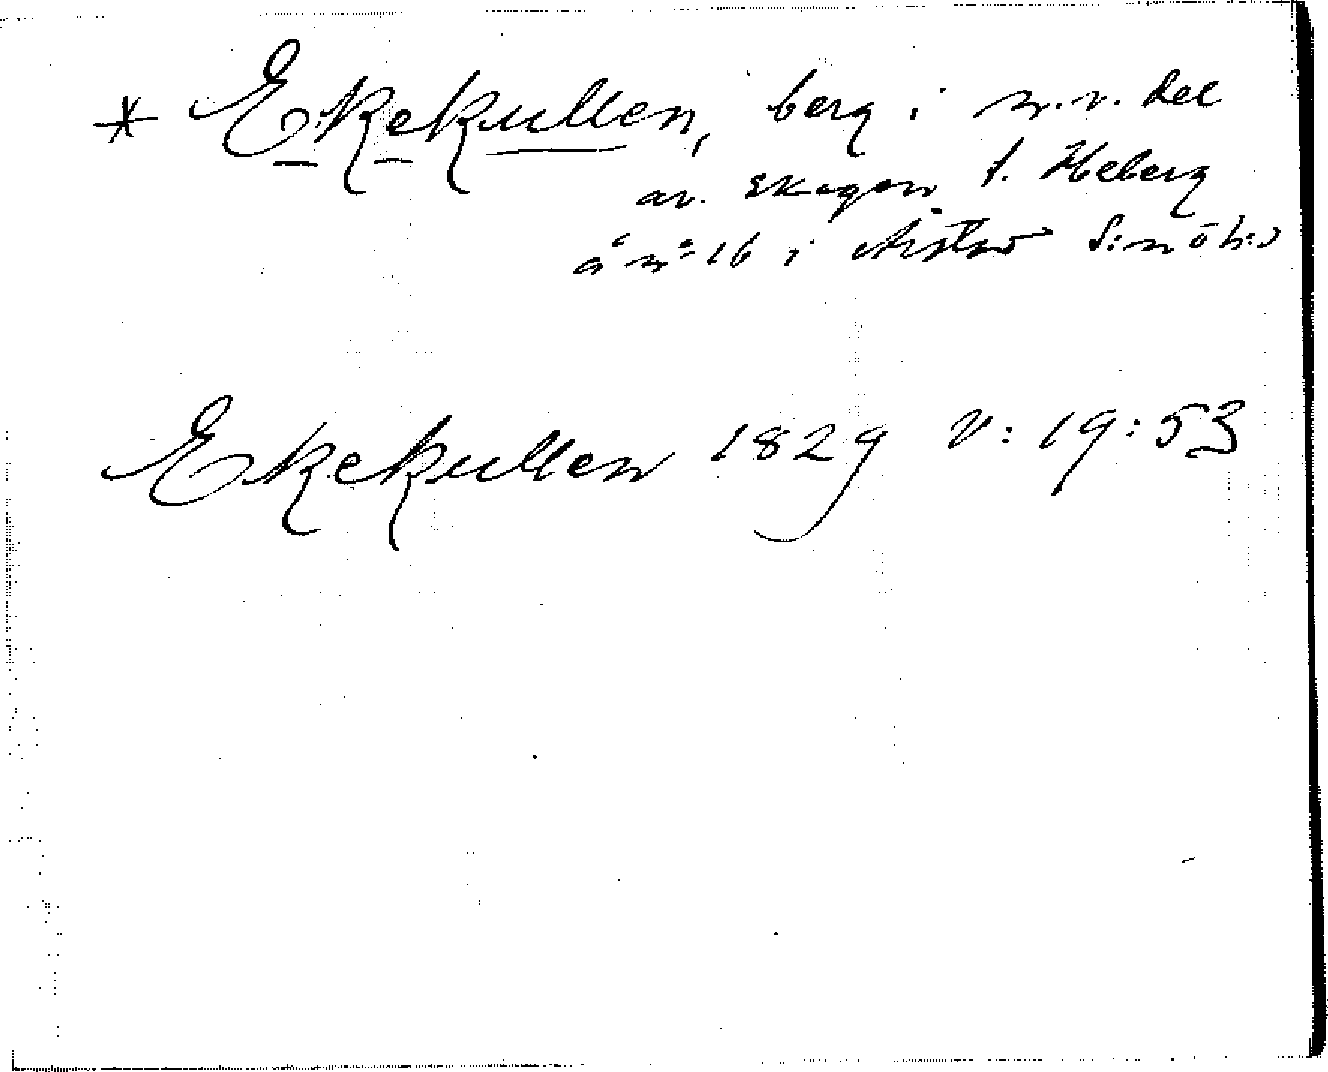 * Ekekullen, berg i n.v. del
av skogen t. Heberg
å nº 16 i Årstad s:n o h:d
Ekekullen 1829 V: 19:53